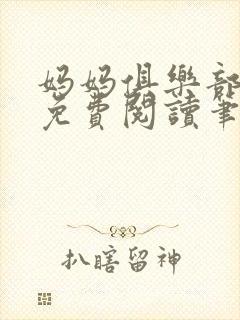 妈妈俱樂部
免費閱讀筆
扒瞎留神